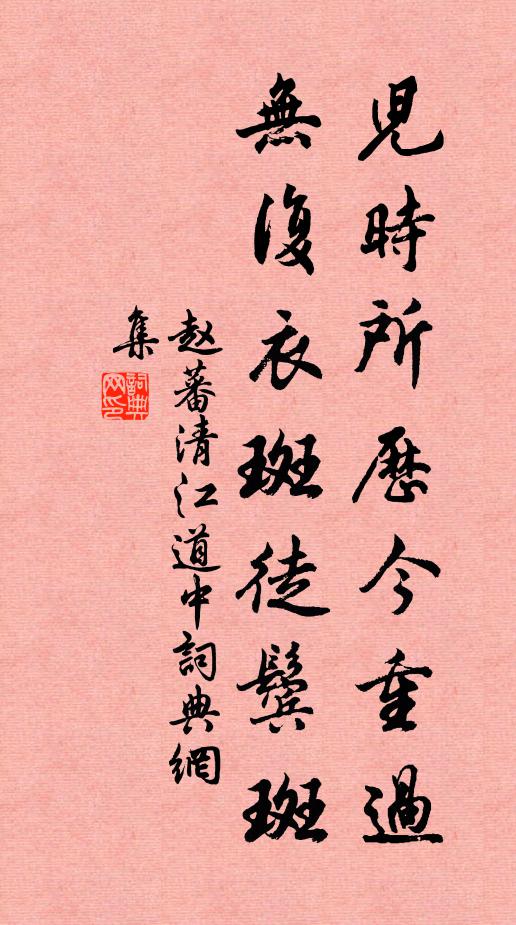 兒時所歷今重過
無復衣斑徒鬢斑
赵蕃清江道中詞典網
集
詞典
网印